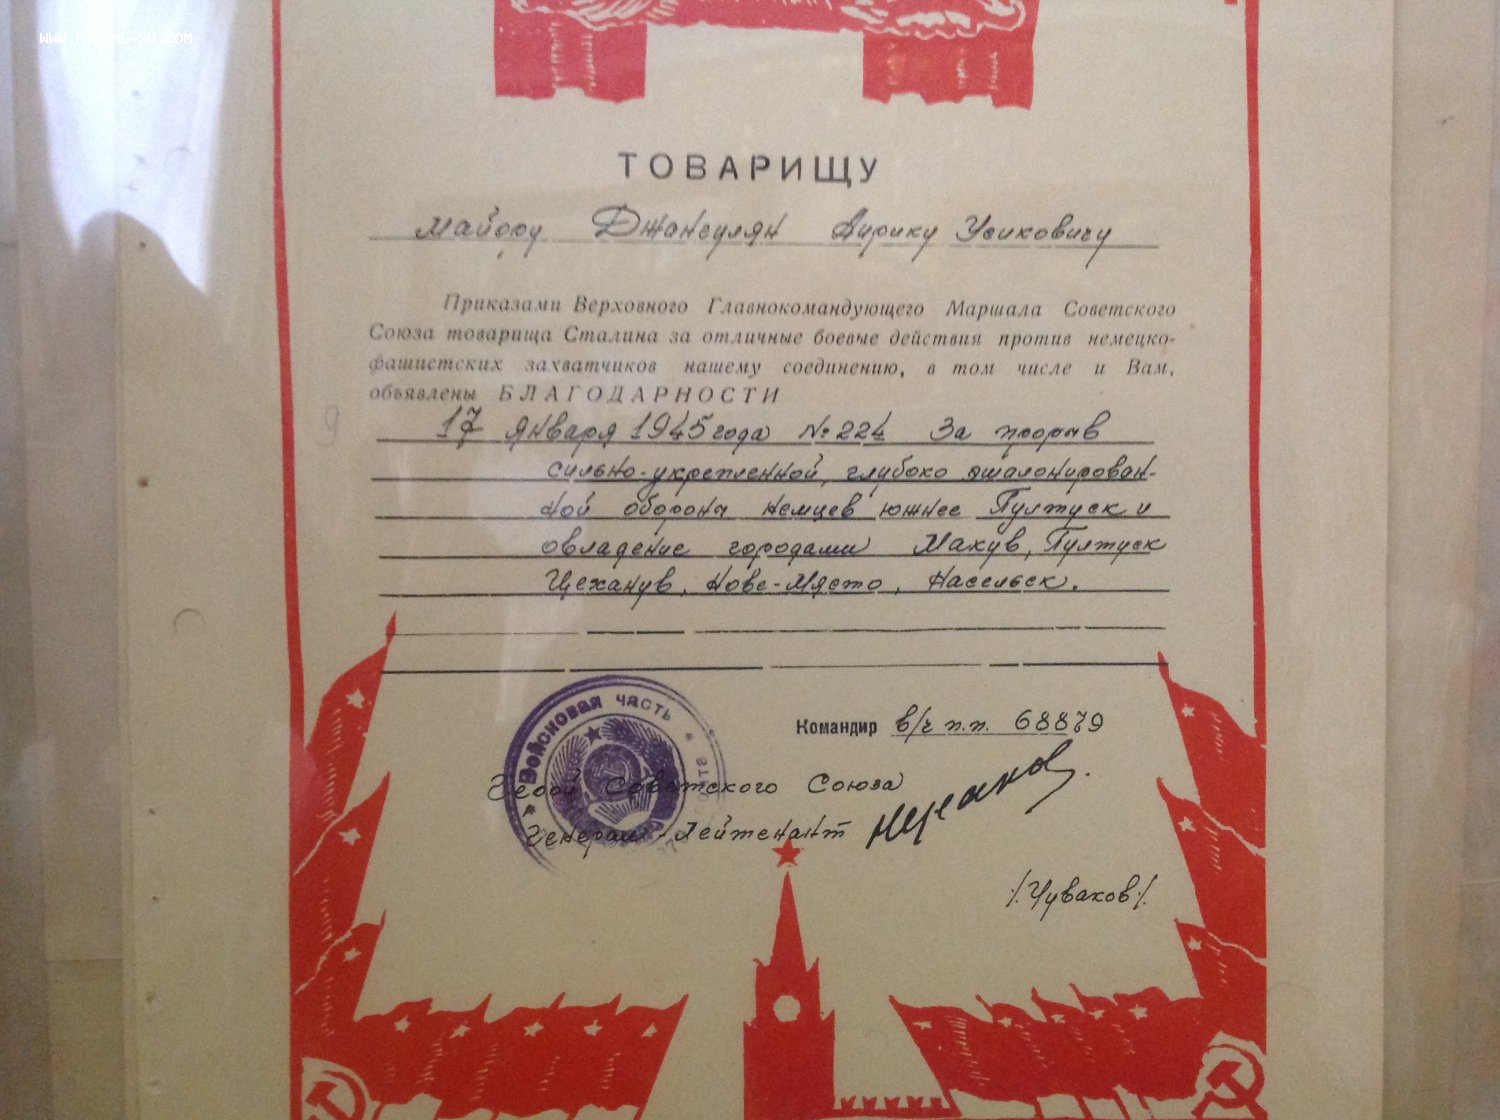 ТОВАРИЩУ
майору Джансулян Аирику Усиковичу
Приказами Верховного Главнокомандующего Маршала Советского
Союза товарища Сталина за отличные боевые действия против немецко-
фашистских захватчиков нашему соединению, в том числе и Вам,
объявлены БЛАГОДАРНОСТИ
17 января 1945 года № 224 За прорыв
сильно-укрепленной, глубоко эшалонирован-
ной обороны немцев южнее Пултуск и
овладение городами Макув, Пултуск
Цеханув, Нове-Място, Насельск.
Войсковая часть
Командир в/ч п.п. 68879
Герой Советского Союза
Генерал-Лейтенант
/Чуваков/.